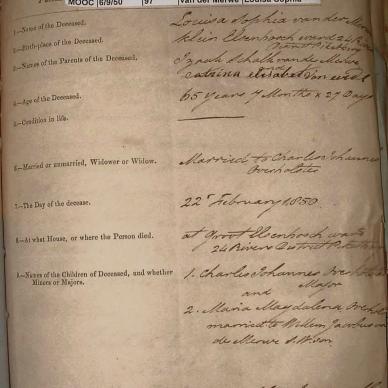 MOOC 6/9/50 97 Van der Merwe Louisa Sophia
1.—Name of the Deceased. Louisa Sophia van der Merwe
2.—Birth-place of the Deceased. Klein Elsenboch ward 24 Rivers
3.—Names of the Parents of the Deceased. Izaak Schalk van de Merwe
and
Catrina Elisabet van
4.—Age of the Deceased. 65 Years 7 Months & 27 Days
5.—Condition in life.
6.—Married or unmarried, Widower or Widow. Married to Charles Johannes
7.—The Day of the decease. 22d February 1850
8.—At what House, or where the Person died. at Groot Elsenboch ward
24 Rivers District
9.—Names of the Children of Deceased, and whether Minors or Majors. 1. Charles Johannes
and Major
2. Maria Magdalena
married to Willem Jacobus van
de Merwe